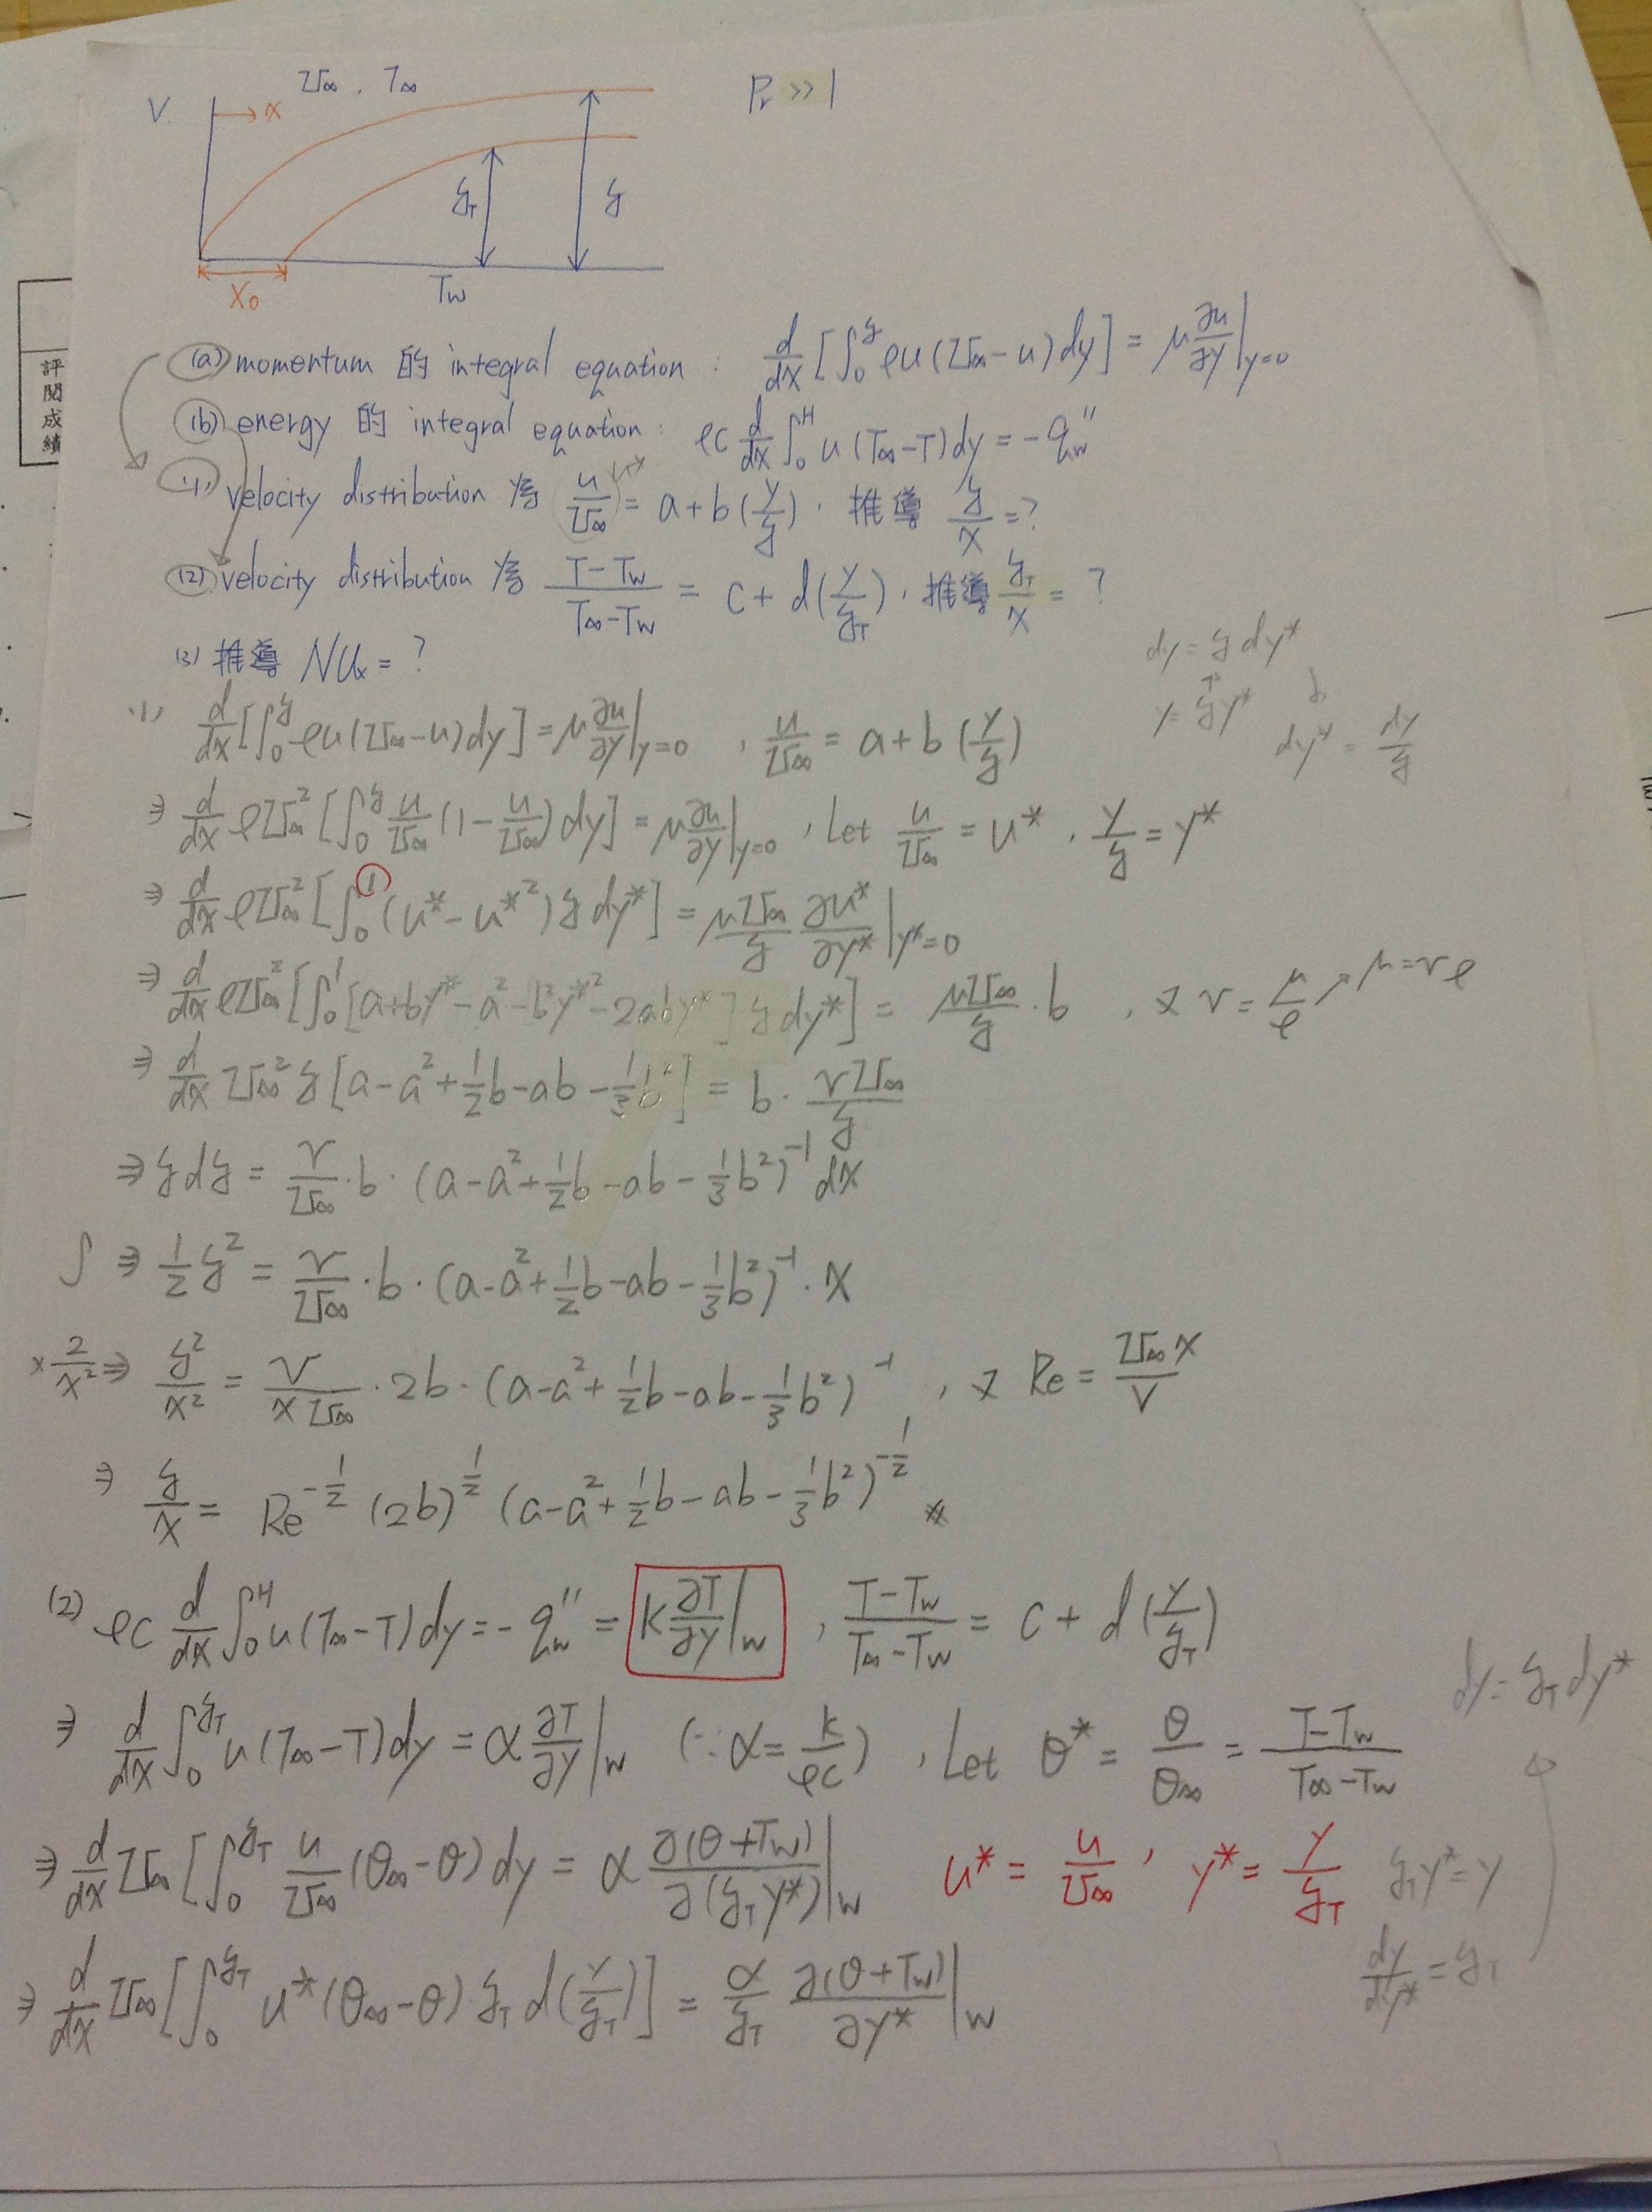 V.
U∞ , T∞
→x
Pr >> 1
δT
δ
x0
Tw
評閱成績
(a) momentum 的 integral equation : d/dx [∫₀^δ ρu (U∞ - u) dy] = μ ∂u/∂y |y=0
(b) energy 的 integral equation : ρc d/dx ∫₀^H u (T∞ - T) dy = - qw''
(1) velocity distribution 為 u/U∞ = a + b (y/δ) , 推導 δ/x = ?
(2) velocity distribution 為 (T - Tw)/(T∞ - Tw) = c + d (y/δT) , 推導 δT/x = ?
(3) 推導 Nux = ?
dy = δ dy*
y = δy*
dy* = dy/δ
(1) d/dx [∫₀^δ ρu (U∞ - u) dy] = μ ∂u/∂y |y=0 , u/U∞ = a + b (y/δ)
⇒ d/dx ρU∞² [∫₀^δ u/U∞ (1 - u/U∞) dy] = μ ∂u/∂y |y=0 , Let u/U∞ = u* , y/δ = y*
⇒ d/dx ρU∞² [∫₀¹ (u* - u*²) δ dy*] = μU∞/δ ∂u*/∂y* |y*=0
⇒ d/dx ρU∞² [∫₀¹ [a + by* - a² - b²y*² - 2aby*] δ dy*] = μU∞/δ · b , 又 ν = μ/ρ ↗ μ = νρ
⇒ d/dx U∞² δ [a - a² + 1/2 b - ab - 1/3 b²] = b · νU∞/δ
⇒ δdδ = ν/U∞ · b · (a - a² + 1/2 b - ab - 1/3 b²)⁻¹ dx
∫ ⇒ 1/2 δ² = ν/U∞ · b · (a - a² + 1/2 b - ab - 1/3 b²)⁻¹ · x
× 2/x² ⇒ δ²/x² = ν/(x U∞) · 2b · (a - a² + 1/2 b - ab - 1/3 b²)⁻¹ , 又 Re = U∞x/ν
⇒ δ/x = Re^(-1/2) (2b)^(1/2) (a - a² + 1/2 b - ab - 1/3 b²)^(-1/2) #
(2) ρc d/dx ∫₀^H u (T∞ - T) dy = - qw'' = k ∂T/∂y |w , (T - Tw)/(T∞ - Tw) = c + d (y/δT)
dy = δT dy*
⇒ d/dx ∫₀^δT u (T∞ - T) dy = α ∂T/∂y |w (∵ α = k/ρc) , Let θ* = θ/θ∞ = (T - Tw)/(T∞ - Tw)
⇒ d/dx U∞ [∫₀^δT u/U∞ (θ∞ - θ) dy = α ∂(θ + Tw)/∂(δT y*) |w u* = u/U∞ , y* = y/δT δT y* = y
dy/dy* = δT
⇒ d/dx U∞ [∫₀^δT u* (θ∞ - θ) · δT d(y/δT)] = α/δT ∂(θ + Tw)/∂y* |w